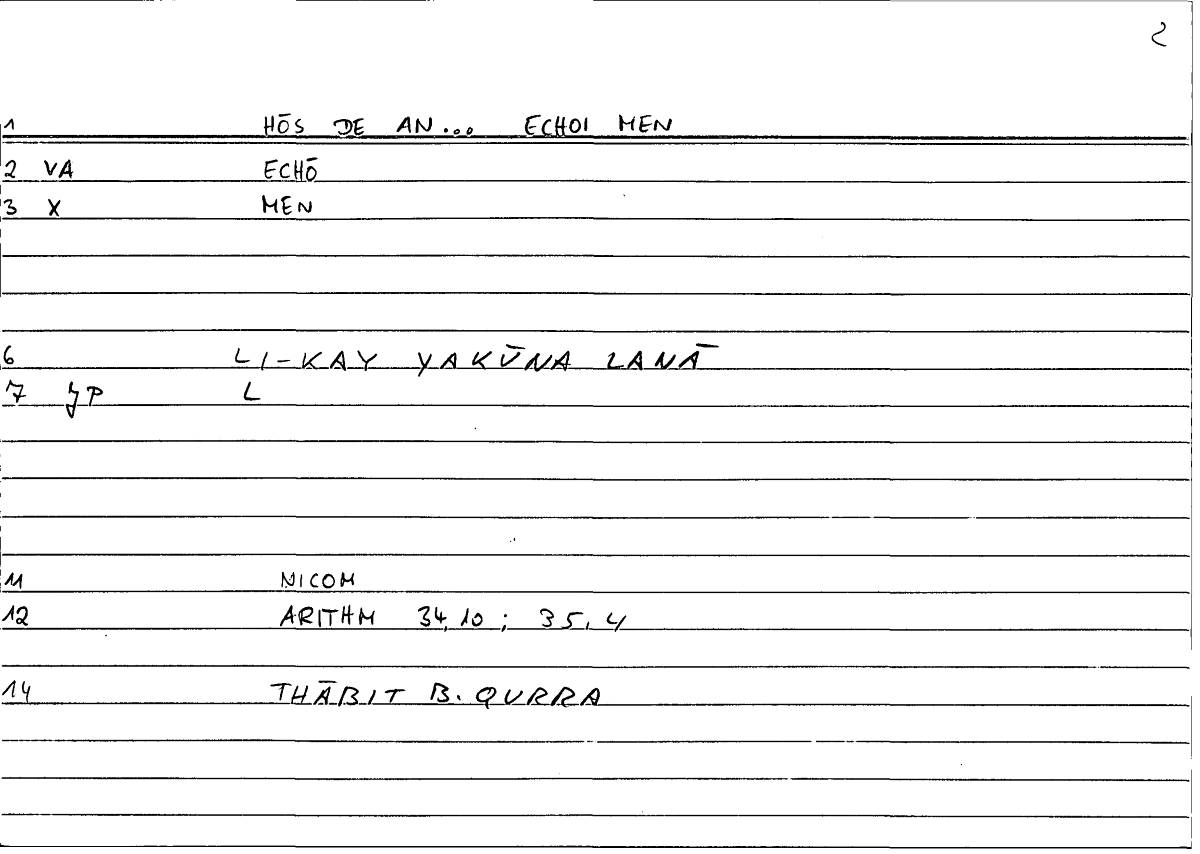 2
1 HŌS DE AN... ECHOI MEN
2 VA ECHŌ
3 X MEN
6 LI-KAY YAKŪNA LANĀ
7 JP L
11 NICOM
12 ARITHM 34,10; 35,4
14 THĀBIT B. QURRA